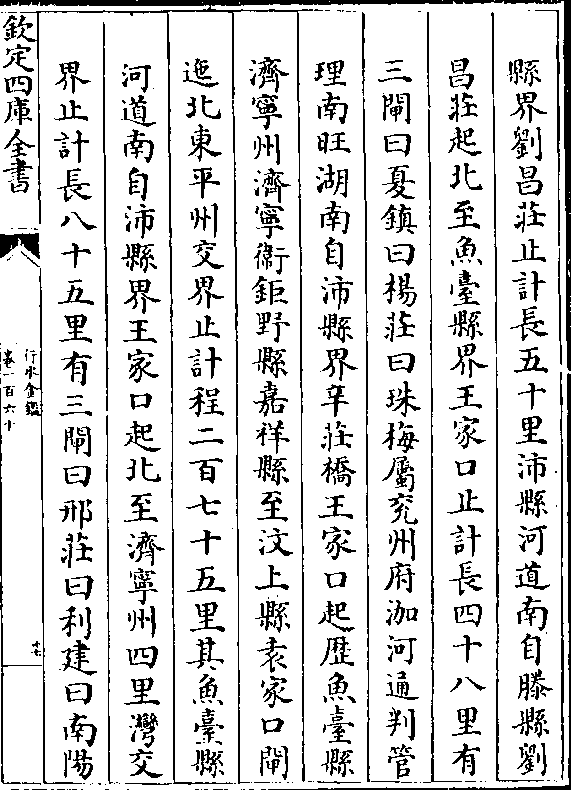 縣界劉昌莊止計長五十里沛縣河道南自滕縣劉
昌莊起北至魚臺縣界王家口止計長四十八里有
三閘曰夏鎮曰楊莊曰珠梅屬兖州府泇河通判管
理南旺湖南自沛縣界辛莊橋王家口起歴魚臺縣
濟寧州濟寧衛鉅野縣嘉祥縣至汶上縣袁家口閘
迤北東平州交界止計程二百七十五里其魚臺縣
河道南自沛縣界王家口起北至濟寧州四里灣交
界止計長八十五里有三閘曰邢莊曰利建曰南陽
欽定四庫全書
行水金鑑
卷一百六十